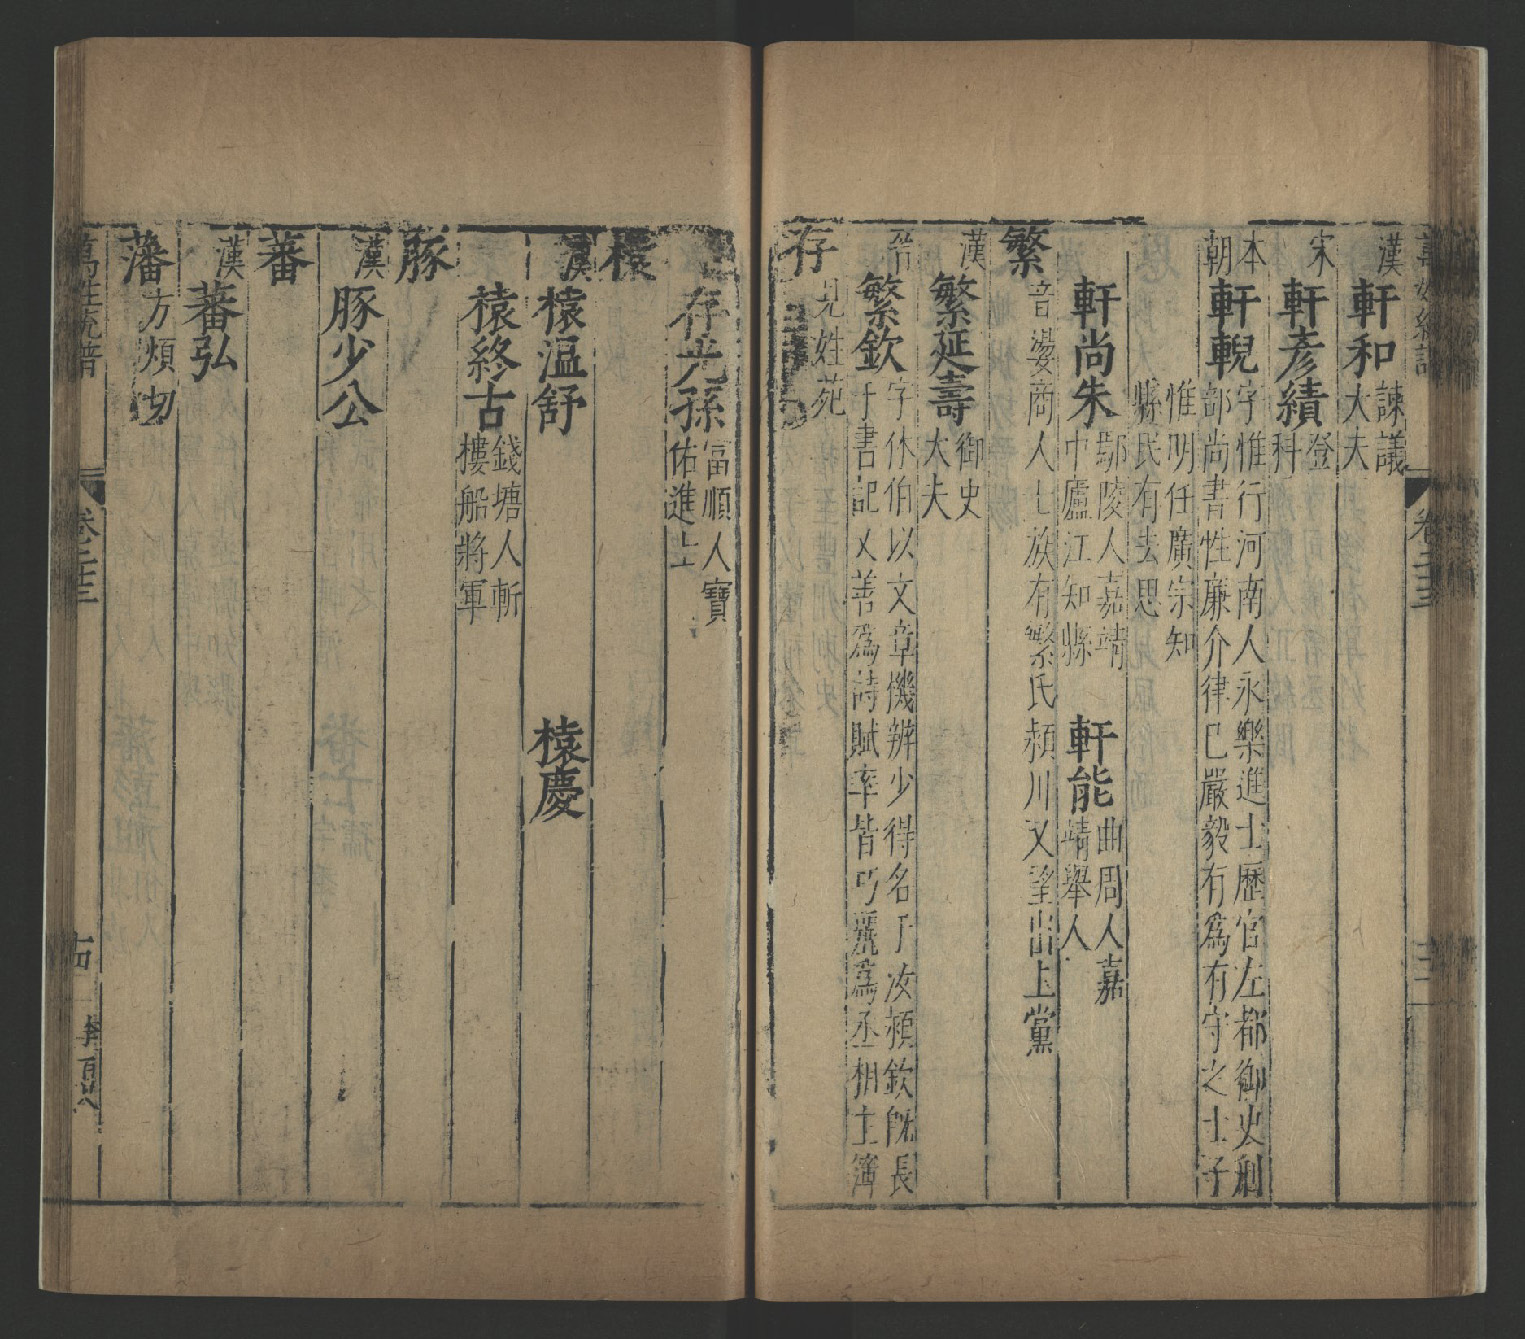 漢 軒和 諫議大夫
宋 軒彥績 登科
本朝 軒輗 字惟行河南人永樂進士歷官左都御史刑部尚書性廉介律己嚴毅有為有守之士子
惟明任廣宗知縣民有去思
軒尚朱 鄢陵人嘉靖中廬江知縣 軒能 曲周人嘉靖舉人
繁 音婆商人七族有繁氏潁川又望出上黨
漢 繁延壽 御史大夫
繁欽 字休伯以文章機辨少得名于汝潁欽既長于書記又善為詩賦率皆巧麗為丞相主簿
存 見姓苑
存光孫 富順人寶佑進士
榬
漢 榬温舒 榬慶
榬終古 錢塘人斬摟船將軍
豚
漢 豚少公
蕃
漢 蕃弘
藩 方煩切
萬姓統譜 卷二十三